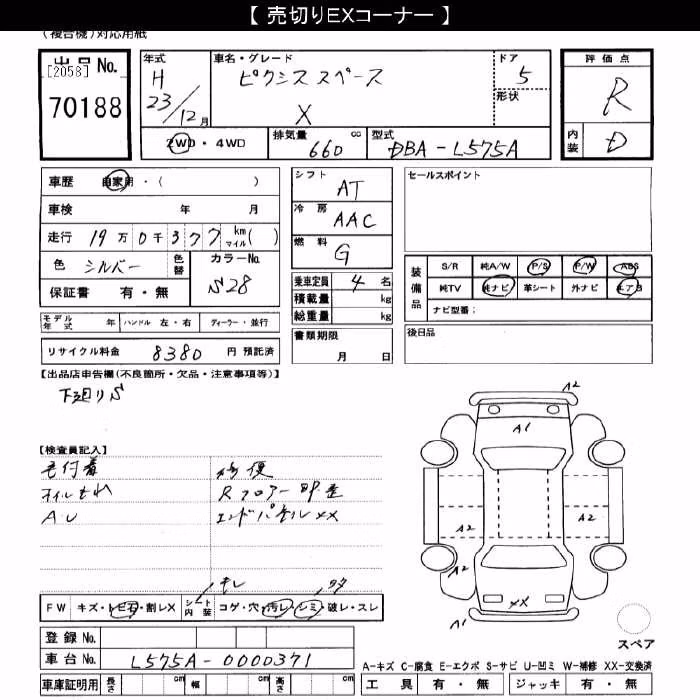 【 売切りEXコーナー 】
(複合機)対応用紙
出品No.
[2058]
70188
年式
H
23/12月
車名・グレード
ピクシススペース
X
ドア
5
形状
評価点
R
内装
D
2WD・4WD
排気量 cc
660
型式
DBA-L575A
車歴 自家用・( )
車検 年 月
走行 19万0千377 km マイル( )
色 シルバー 色替
カラーNo.
S28
保証書 有・無
シフト
AT
冷房
AAC
燃料
G
乗車定員 4 名
積載量 kg
総重量 kg
セールスポイント
装備品
S/R 純A/W P/S P/W ABS
純TV 純ナビ 革シート 外ナビ エアB
ナビ型番:
モデル年式 年 ハンドル 左・右 ディーラー・並行
リサイクル料金 8380 円 預託済
書類期限
月 日
後日品
【出品店申告欄(不良箇所・欠品・注意事項等)】
下廻りS
【検査員記入】
毛付着
オイルもれ
AU
修復
Rフロアー
エンドパネルXX
A2
A1
A2
A2
A2
A2
XX
A1
スペア
キレ
FW キズ・トビ石・割レX シート内装 コゲ・穴・汚レ・シミ・破レ・スレ
登録No.
車台No. L575A-0000371
車庫証明用 長さ cm 幅 cm 高さ cm
A-キズ C-腐食 E-エクボ S-サビ U-凹ミ W-補修 XX-交換済
工具 有・無 ジャッキ 有・無